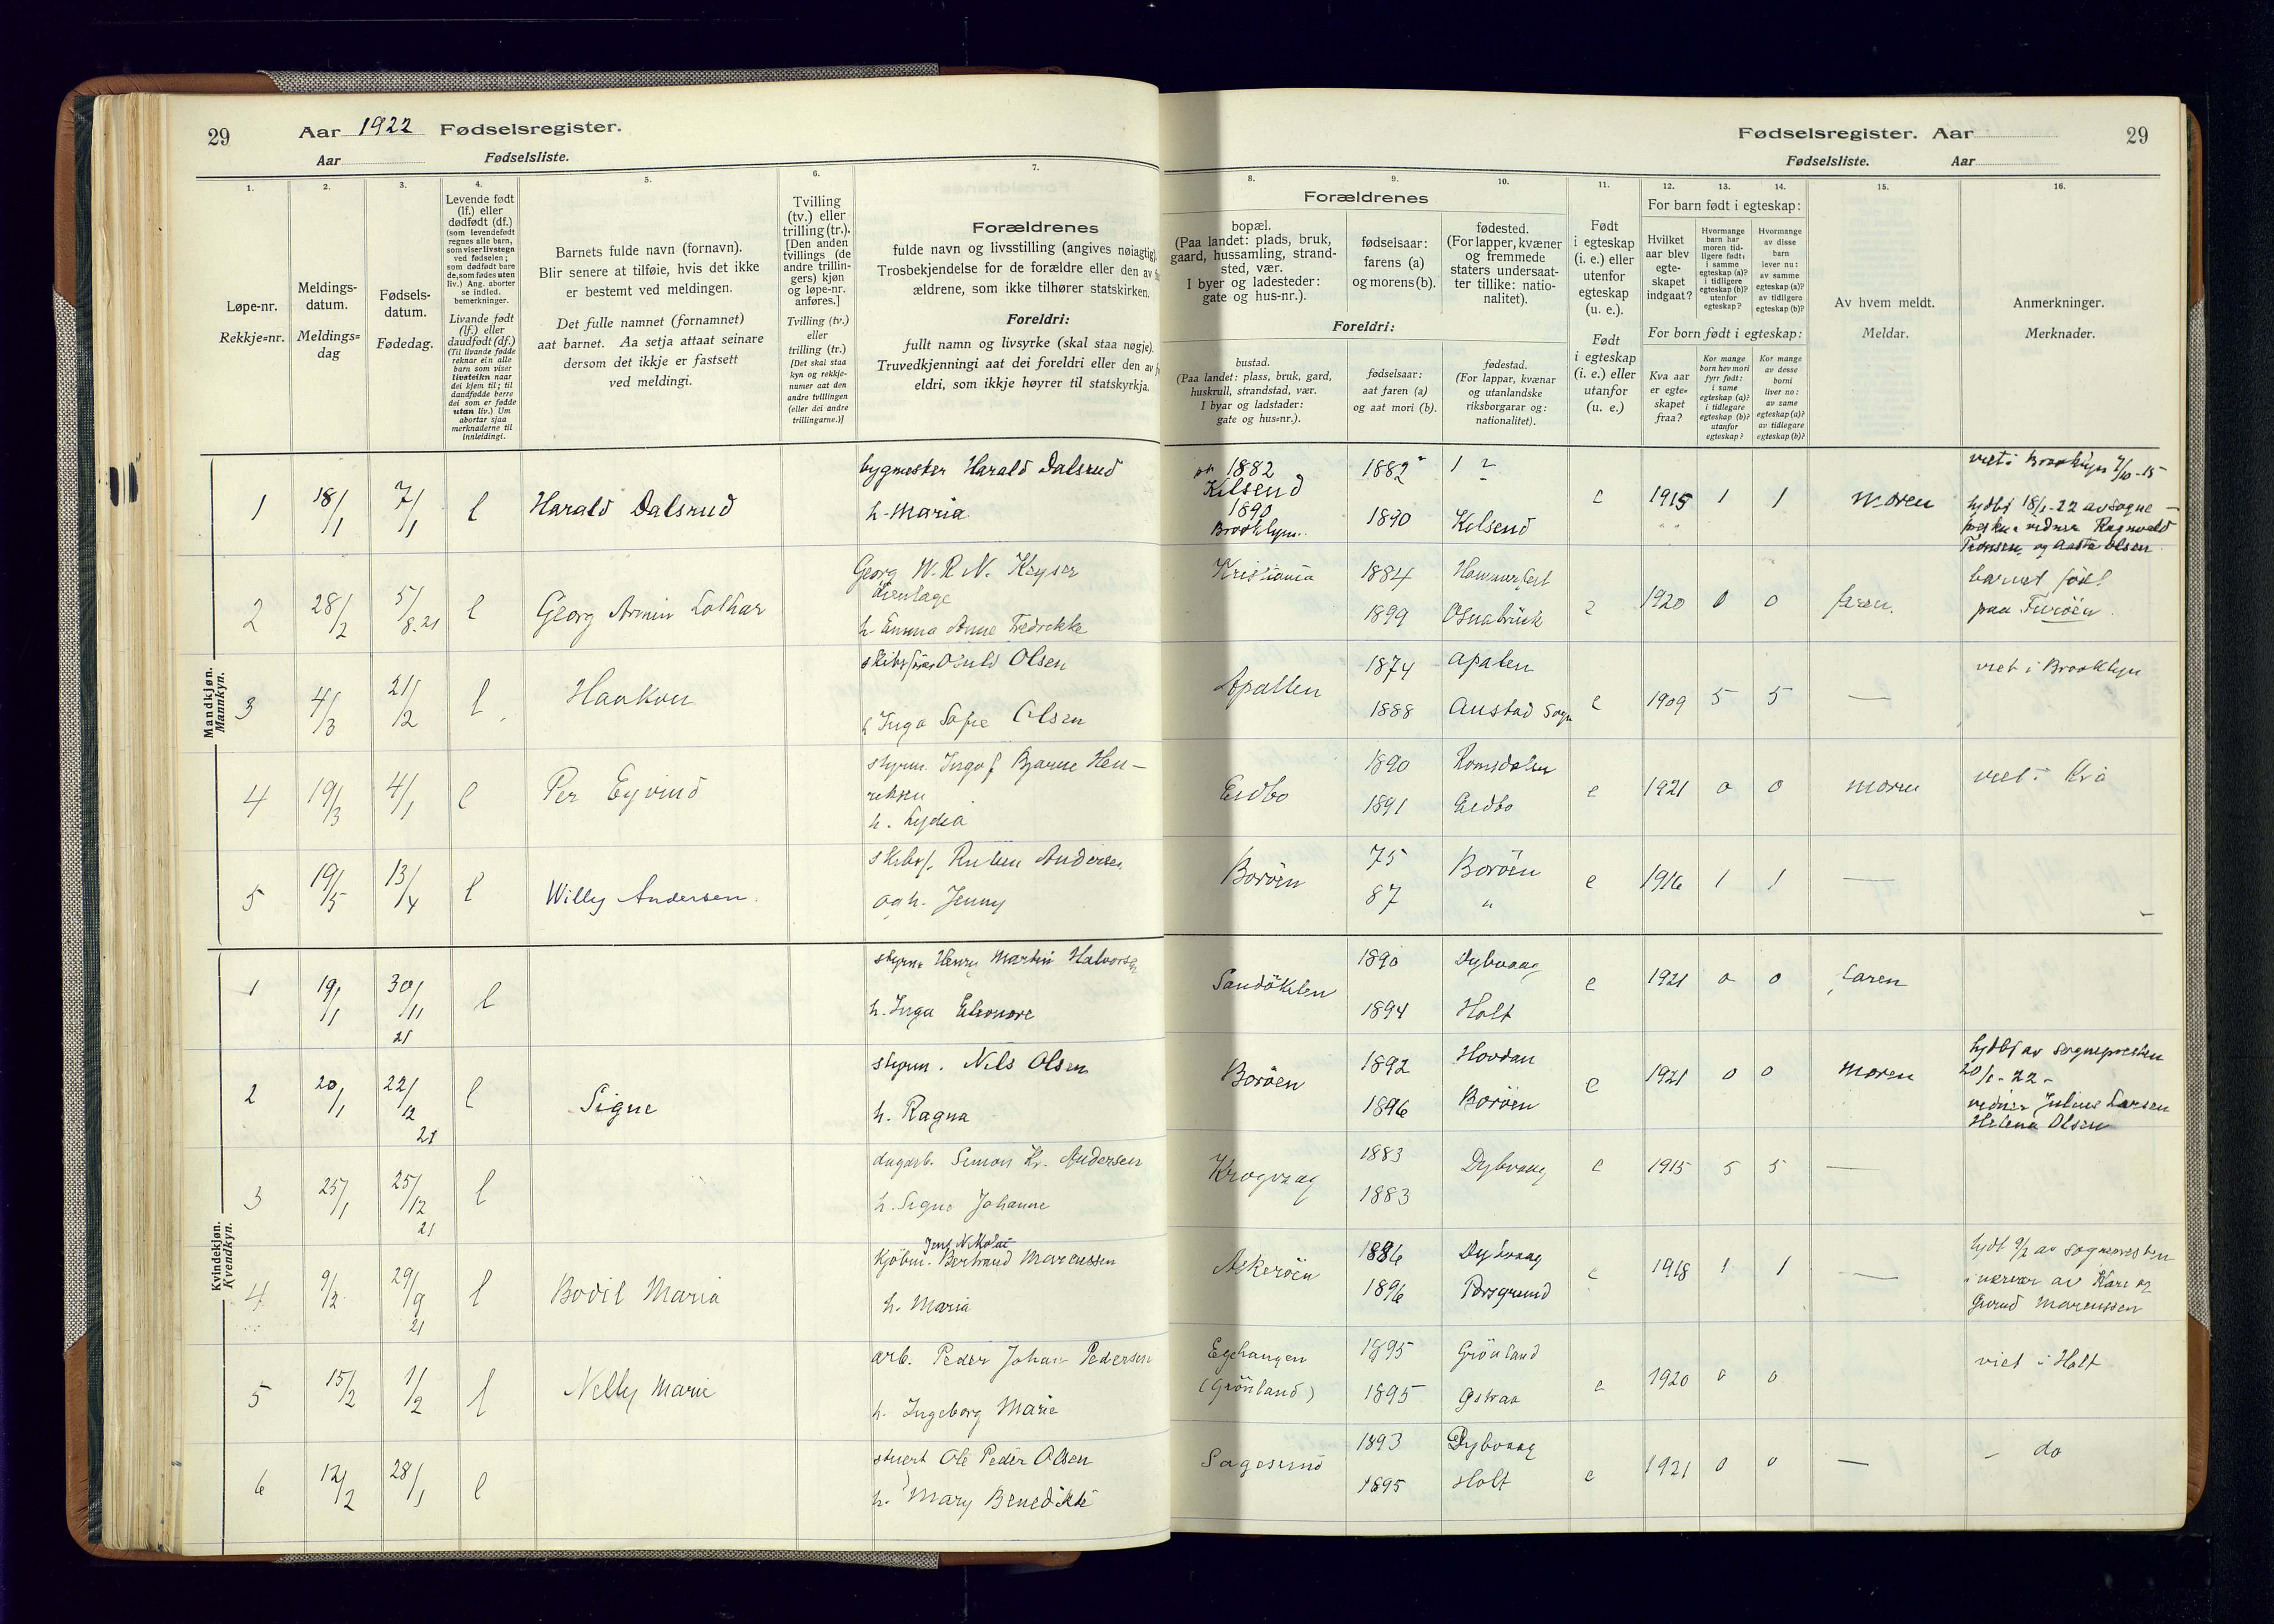 29 Aar 1922 Fødselsregister.
Aar Fødselsliste.
1.
2.
3.
4.
5.
6.
7.
Løpe-nr.
Rekkje=nr.
Meldings-
datum.
Meldings=
dag
Fødsels-
datum.
Fødedag.
Levende født
(lf.) eller
dødfødt (df.)
(som levendefødt
regnes alle barn,
som viser livstegn
ved fødselen;
som dødfødt bare
de, som fødes uten
liv.) Ang. aborter
se indled.
bemerkninger.
Livande født
(lf.) eller
daudfødt (df.)
(Til livande fødde
reknar ein alle
barn som viser
livsteikn naar
dei kjem til; til
daudfødde berre
dei som er fødde
utan liv.) Um
abortar sjaa
merknaderne til
innleidingi.
Barnets fulde navn (fornavn).
Blir senere at tilføie, hvis det ikke
er bestemt ved meldingen.
Det fulle namnet (fornamnet)
aat barnet. Aa setja attaat seinare
dersom det ikkje er fastsett
ved meldingi.
Tvilling
(tv.) eller
trilling (tr.).
[Den anden
tvillings (de
andre trillin-
gers) kjøn
og løpe-nr.
anføres.]
Tvilling (tv.)
eller
trilling (tr.)
[Det skal staa
kyn og rekkje-
numer aat den
andre tvillingen
(eller dei andre
trillingarne.)]
Forældrenes
fulde navn og livsstilling (angives nøiagtig).
Trosbekjendelse for de forældre eller den av
ældrene, som ikke tilhører statskirken.
Foreldri:
fullt namn og livsyrke (skal staa nøgje).
Truvedkjenningi aat dei foreldri eller den av
eldri, som ikkje høyrer til statskyrkja.
Mandkjøn.
Mannkyn.
1 18/1 7/1 l Harald Dalsrud
bygmester Harald Dalsrud
h. Maria
2 28/2 5/8.21 l Georg Armin Lothar
Georg W. R. N. Keyser
h. Emma Anne Fredrekke
3 4/3 21/12 l Haakon
Olsen
h Inga Sofie Olsen
4 19/3 4/1 l Per Eyvind
styrm. Ingolf Bjarne Hen-
riksen
h. Lydia
5 19/5 13/4 l Willy Andersen.
skibsf. Ruben Andersen
og h. Jenny
Kvindekjøn.
Kvendkyn.
1 19/1 30/11 21 l
styrm. Henry Martin Halvorsen
h. Inga Eleonore
2 20/1 22/12 21 l Signe
styrm. Nils Olsen
h. Ragna
3 25/1 25/12 21 l
dagarb. Simon Kr. Andersen
h. Signe Johanne
4 9/2 29/9 21 l Bodil Maria
Jens Nikolai
Kjöbm. Bertrand Marcussen
h. Maria
5 15/2 1/2 l Nelly Marie
arb. Peder Johan Pedersen
h. Ingeborg Marie
6 12/2 28/1 l
stuert Ole Peder Olsen
h. Mary Benedikte
Fødselsregister. Aar 29
Fødselsliste. Aar
8.
9.
10.
11.
12.
13.
14.
15.
16.
Forældrenes
bopæl.
(Paa landet: plads, bruk,
gaard, hussamling, strand-
sted, vær.
I byer og ladesteder:
gate og hus-nr.).
fødselsaar:
farens (a)
og morens (b).
fødested.
(For lapper, kvæner
og fremmede
staters undersaat-
ter tillike: natio-
nalitet).
Foreldri:
bustad.
(Paa landet: plass, bruk, gard,
huskrull, strandstad, vær.
I byar og ladstader:
gate og hus=nr.).
fødselsaar:
aat faren (a)
og aat mori (b).
fødestad.
(For lappar, kvænar
og utanlandske
riksborgarar og:
nationalitet).
Født
i egteskap
(i. e.) eller
utenfor
egteskap
(u. e.).
Født
i egteskap
(i. e.) eller
utanfor
(u. e.)
For barn født i egteskap:
Hvilket
aar blev
egte-
skapet
indgaat?
Hvormange
barn har
moren tid-
ligere født:
i samme
egteskap (a)?
i tidligere
egteskap (b)?
utenfor
egteskap?
Hvormange
av disse
barn
lever nu:
av samme
egteskap (a)?
av tidligere
egteskap (b)?
For born født i egteskap:
Kva aar
er egte=
skapet
fraa?
Kor mange
born hev mori
fyrr født:
i same
egteskap (a)?
i tidlegare
egteskap (b)?
utanfor
egteskap?
Kor mange
av desse
borni
liver no:
av same
egteskap (a)?
av tidlegare
egteskap (b)?
Av hvem meldt.
Meldar.
Anmerkninger.
Merknader.
1882
Kilsund
1890
Brooklyn.
1882 ?
1890 Kilsund
e 1915 1 1 moren
viet i Brooklyn 7/10-15
hjdbt 18/1-22 av sogne-
Ragnvald
og Aasta Olsen
Kristiania 1884 Hammerfest
1899 Osnabrück
e 1920 0 0 faren.
barnet födt
paa Furöen.
Apalten 1874 Apalten
1888 Austad Sogn
e 1909 5 5 —
viet i Brooklyn
Eidbo 1890 Romsdalen
1891 Eidbo
e 1921 0 0 moren
viet i Kra
Boröen 75 Boröen
87 "
e 1916 1 1 —
Sandökilen 1890 Dybvaag
1894 Holt
e 1921 0 0 faren
Boröen 1892 Hovdan
1896 Boröen
e 1921 0 0 moren
hjdbt av sognepresten
20/1-22-
vidner Julius Larsen
Helena Olsen
Krogvaag 1883 Dybvaag
1883
e 1915 5 5 —
Askeröen 1886 Dybvaag
1896 Porsgrund
e 1918 1 1 —
hjdt 9/2 av sognepresten
i nærvær av Kare og
Gurud Marcussen
Eghaugen 1895 Grönland
(Grönland) 1895
e 1920 0 0
viet i Holt
Sagesund 1893 Dybvaag
1895 Holt
e 1921 0 0 —
— do